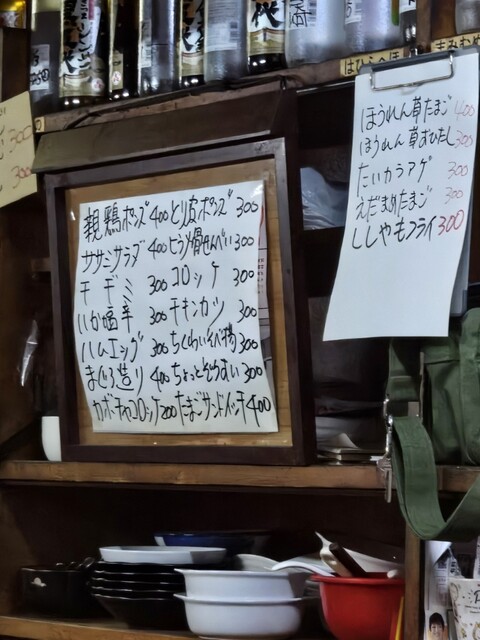 はひふへほ
まみむめも
ほうれん草たまご 400
ほうれん草おひたし 300
たいカラアゲ 300
えだまめたまご 300
ししゃもフライ 300
親鶏ポンズ 400 とり皮ポンズ 300
ササミサラダ 400 とうふ骨せんべい 300
チヂミ 300 コロッケ 300
いか塩辛 300 チキンカツ 300
ハムエッグ 300 ちくわいそべ揚 300
まぐろ造り 400 ちょっとぞうすい 300
カボチャコロッケ 200 たまごサンドイッチ 400
300
300